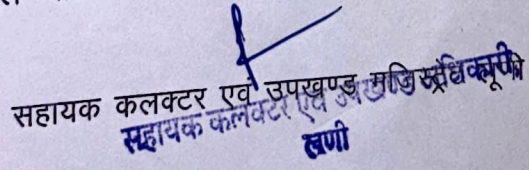 सहायक कलक्टर एवं उपखण्ड मजिस्ट्रेट लूणी
सहायक कलक्टर एवं उपखण्ड अधिकारी
लूणी